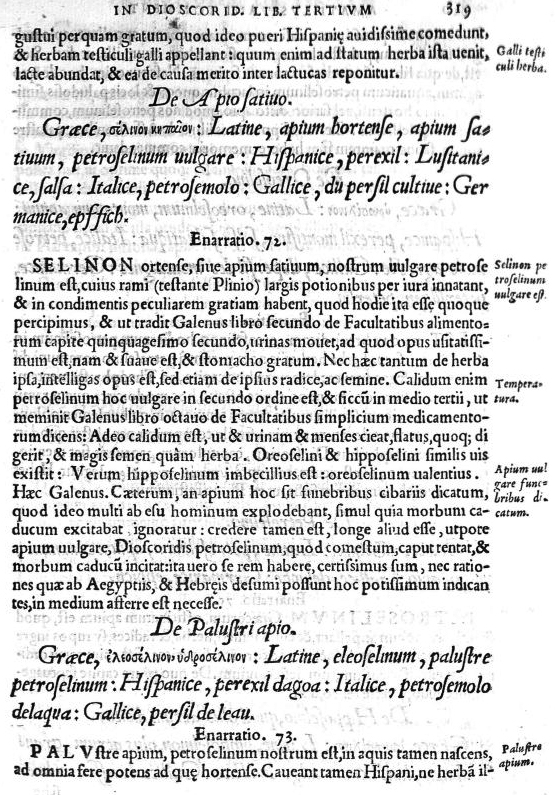 IN DIOSCORID. LIB. TERTIVM 319
gustui perquam gratum, quod ideo pueri Hispanię auidissime comedunt,
& herbam testiculi galli appellant: quum enim ad statum herba ista uenit,
lacte abundat, & ea de causa merito inter lactucas reponitur.
Galli testi
culi herba.
De Apio satiuo.
Græce, σέλινον κηπαῖον: Latine, apium hortense, apium sa-
tiuum, petroselinum uulgare: Hispanice, perexil: Lusitani-
ce, salsa: Italice, petrosemolo: Gallice, du persil cultiue: Ger
manice, epffich.
Enarratio. 72.
SELINON ortense, siue apium satiuum, nostrum uulgare petrose
linum est, cuius rami (testante Plinio) largis potionibus per iura innatant,
& in condimentis peculiarem gratiam habent, quod hodie ita esse quoque
percipimus, & ut tradit Galenus libro secundo de Facultatibus alimento-
rum capite quinquagesimo secundo, urinas mouet, ad quod opus usitatissi-
mum est, nam & suaue est, & stomacho gratum. Nec hæc tantum de herba
ipsa, intelligas opus est, sed etiam de ipsius radice, ac semine. Calidum enim
petroselinum hoc uulgare in secundo ordine est, & siccū in medio tertii, ut
meminit Galenus libro octauo de Facultatibus simplicium medicamento-
rum dicens: Adeo calidum est, ut & urinam & menses cieat, flatus, quoq; di
gerit, & magis semen quàm herba. Oreoselini & hipposelini similis uis
existit: Verum hipposelinum imbecillius est: oreoselinum ualentius.
Hæc Galenus. Cæterum, an apium hoc sit funebribus cibariis dicatum,
quod ideo multi ab esu hominum explodebant, simul quia morbum ca-
ducum excitabat, ignoratur: credere tamen est, longe aliud esse, utpote
apium uulgare, Dioscoridis petroselinum, quòd comestum, caput tentat, &
morbum caducū incitat: ita uero se rem habere, certissimus sum, nec ratio-
nes quæ ab Aegyptiis, & Hebręis desumi possunt hoc potissimum indican
tes, in medium afferre est necesse.
Selinon pe
troselinum
uulgare est.
Tempera-
tura.
Apium uul
gare fune-
bribus di-
catum.
De Palustri apio.
Græce, ἐλεοσέλινον ὑδροσέλινον: Latine, eleoselinum, palustre
petroselinum: Hispanice, perexil dagoa: Italice, petrosemolo
delaqua: Gallice, persil de leau.
Enarratio. 73.
PALVstre apium, petroselinum nostrum est, in aquis tamen nascens,
ad omnia fere potens ad quę hortense. Caueant tamen Hispani, ne herbā il-
Palustre
apium.